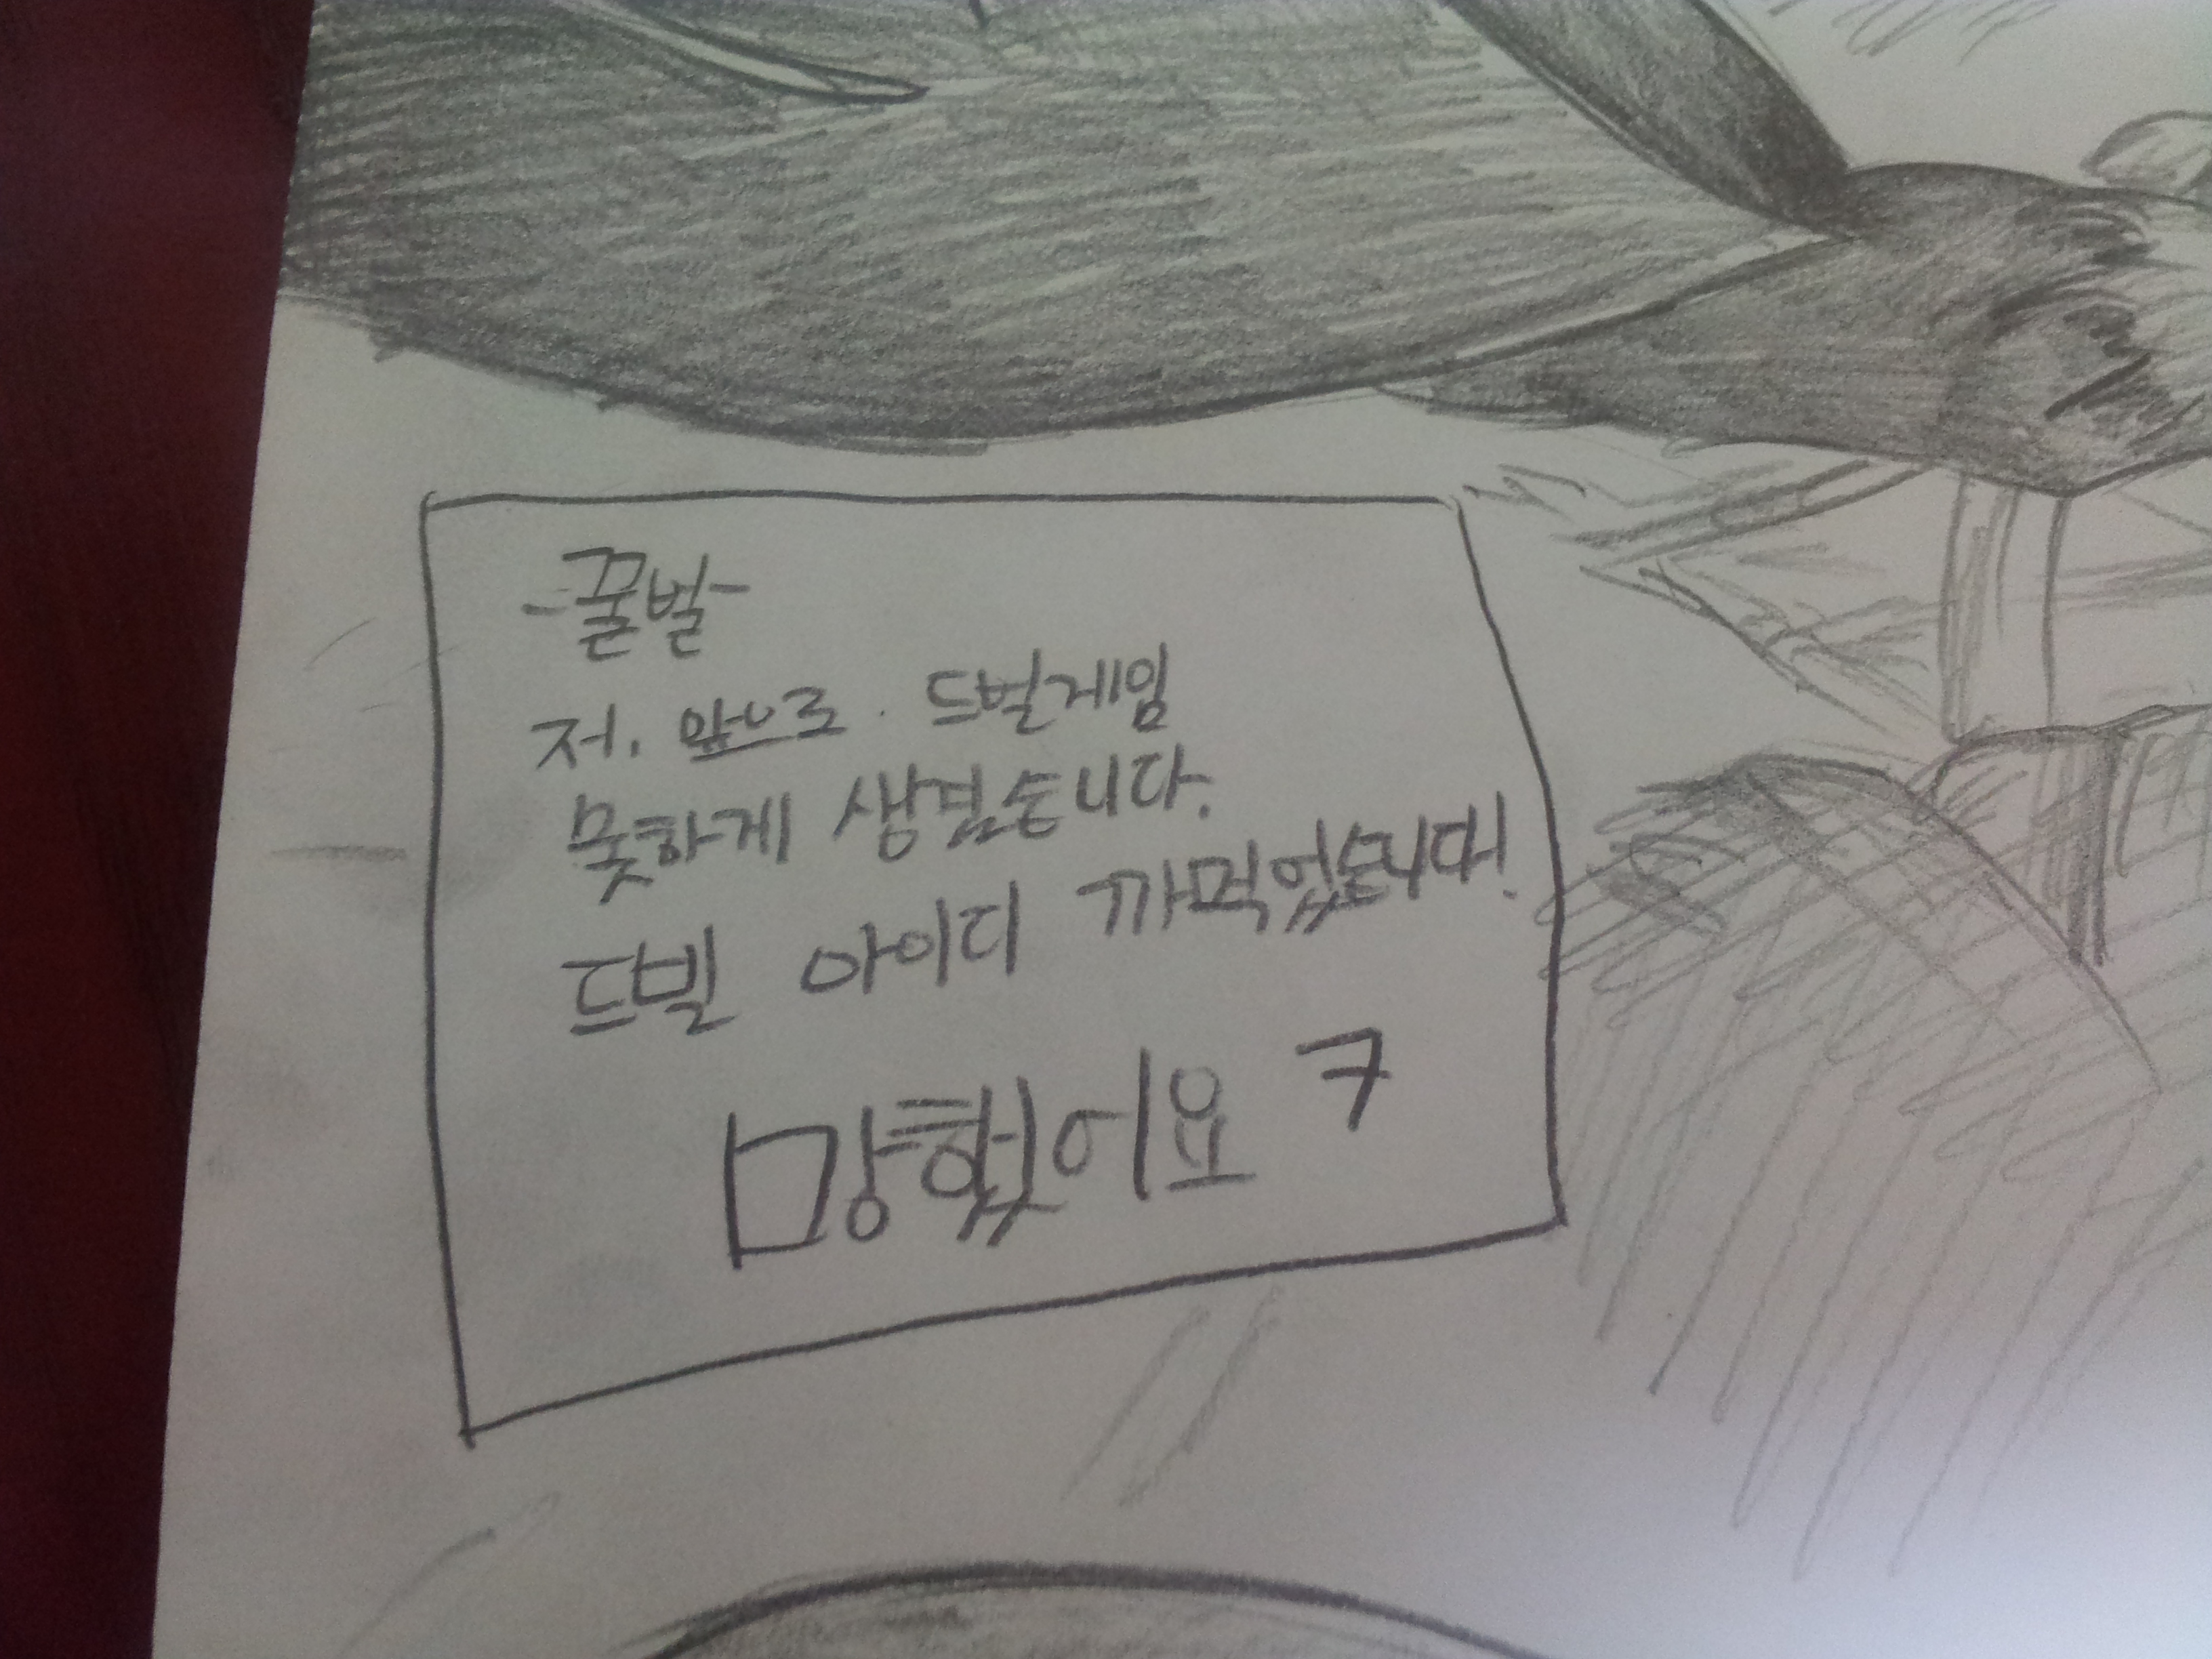 -꿀벌-
저. 앞으로. 드빌게임
못하게 생겼습니다.
드빌 아이디 까먹었습니다!
망했어요 ㅋ